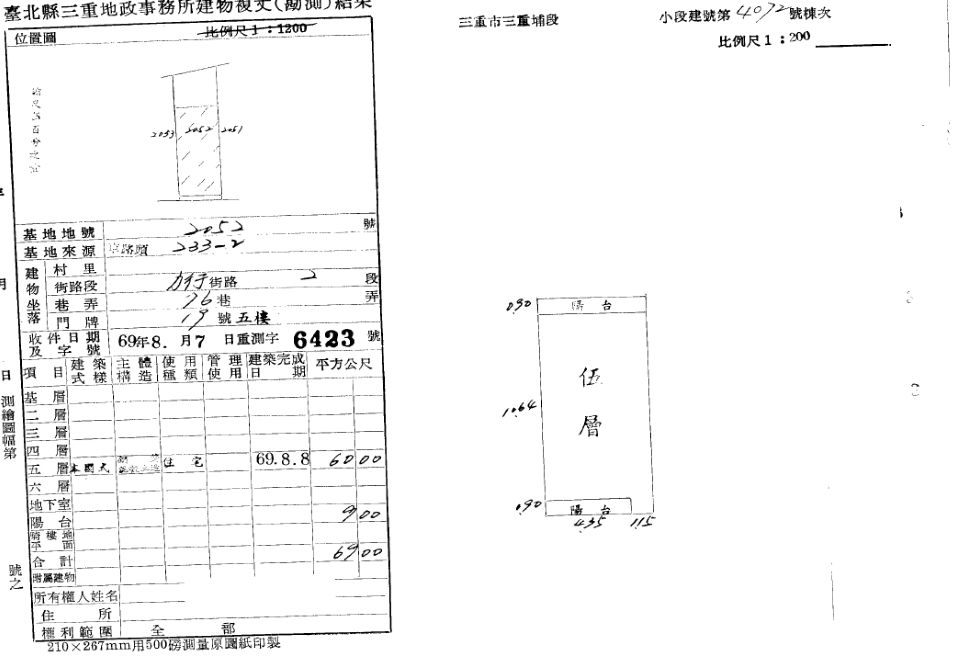 臺北縣三重地政事務所建物複丈(勘測)結果
三重市三重埔段 小段建號第4072號棟次
比例尺1：200
位置圖 比例尺1：1200
2053 2052 2051
基地地號 2052 號
基地來源 233-2
建物坐落
村里
街路段 街路 2 段
巷弄 76巷 弄
門牌 19號五樓
收件日期及字號 69年8.月7日重測字 6423 號
項目 建築式樣 主體構造 使用種類 管理使用 建築完成日期 平方公尺
基層
二層
三層
四層
五層 本國式 住宅 69.8.8 60 00
六層
地下室
陽台 9 00
騎樓地平面
合計 69 00
附屬建物
所有權人姓名
住所
權利範圍 全部
210×267mm用500磅測量原圖紙印製
月
日
測繪圖幅第
號之
0.90 陽台
伍層
10.64
0.90 陽台
4.35 1.15